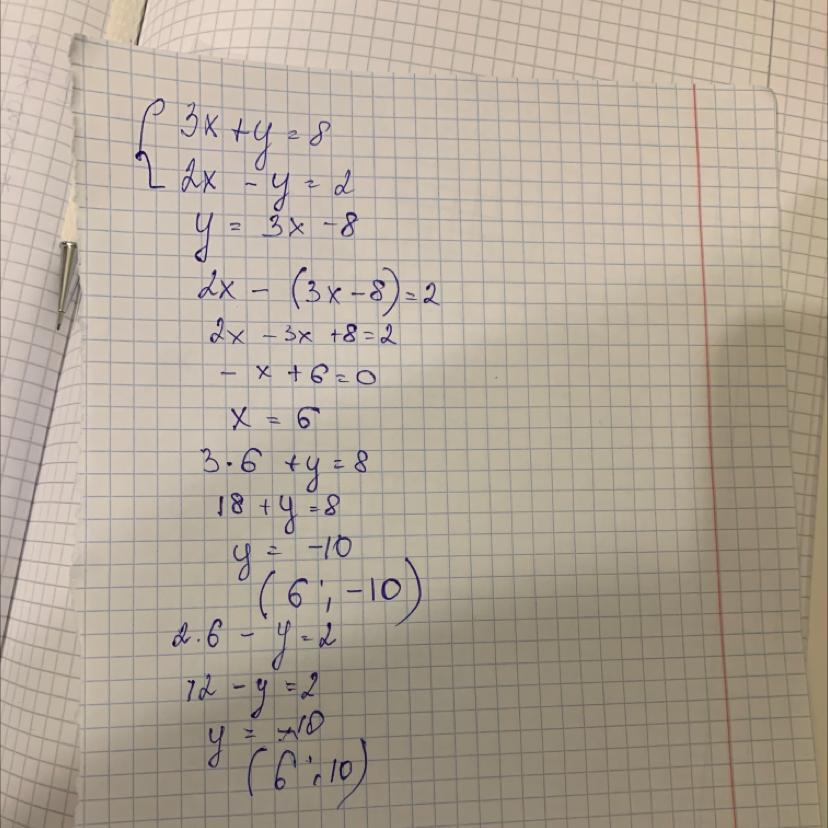 { 3x + y = 8
2x - y = 2
y = 3x - 8
2x - (3x - 8) = 2
2x - 3x + 8 = 2
- x + 6 = 0
x = 6
3 · 6 + y = 8
18 + y = 8
y = -10
(6 ; -10)
2 · 6 - y = 2
12 - y = 2
y = 10
(6 ; 10)